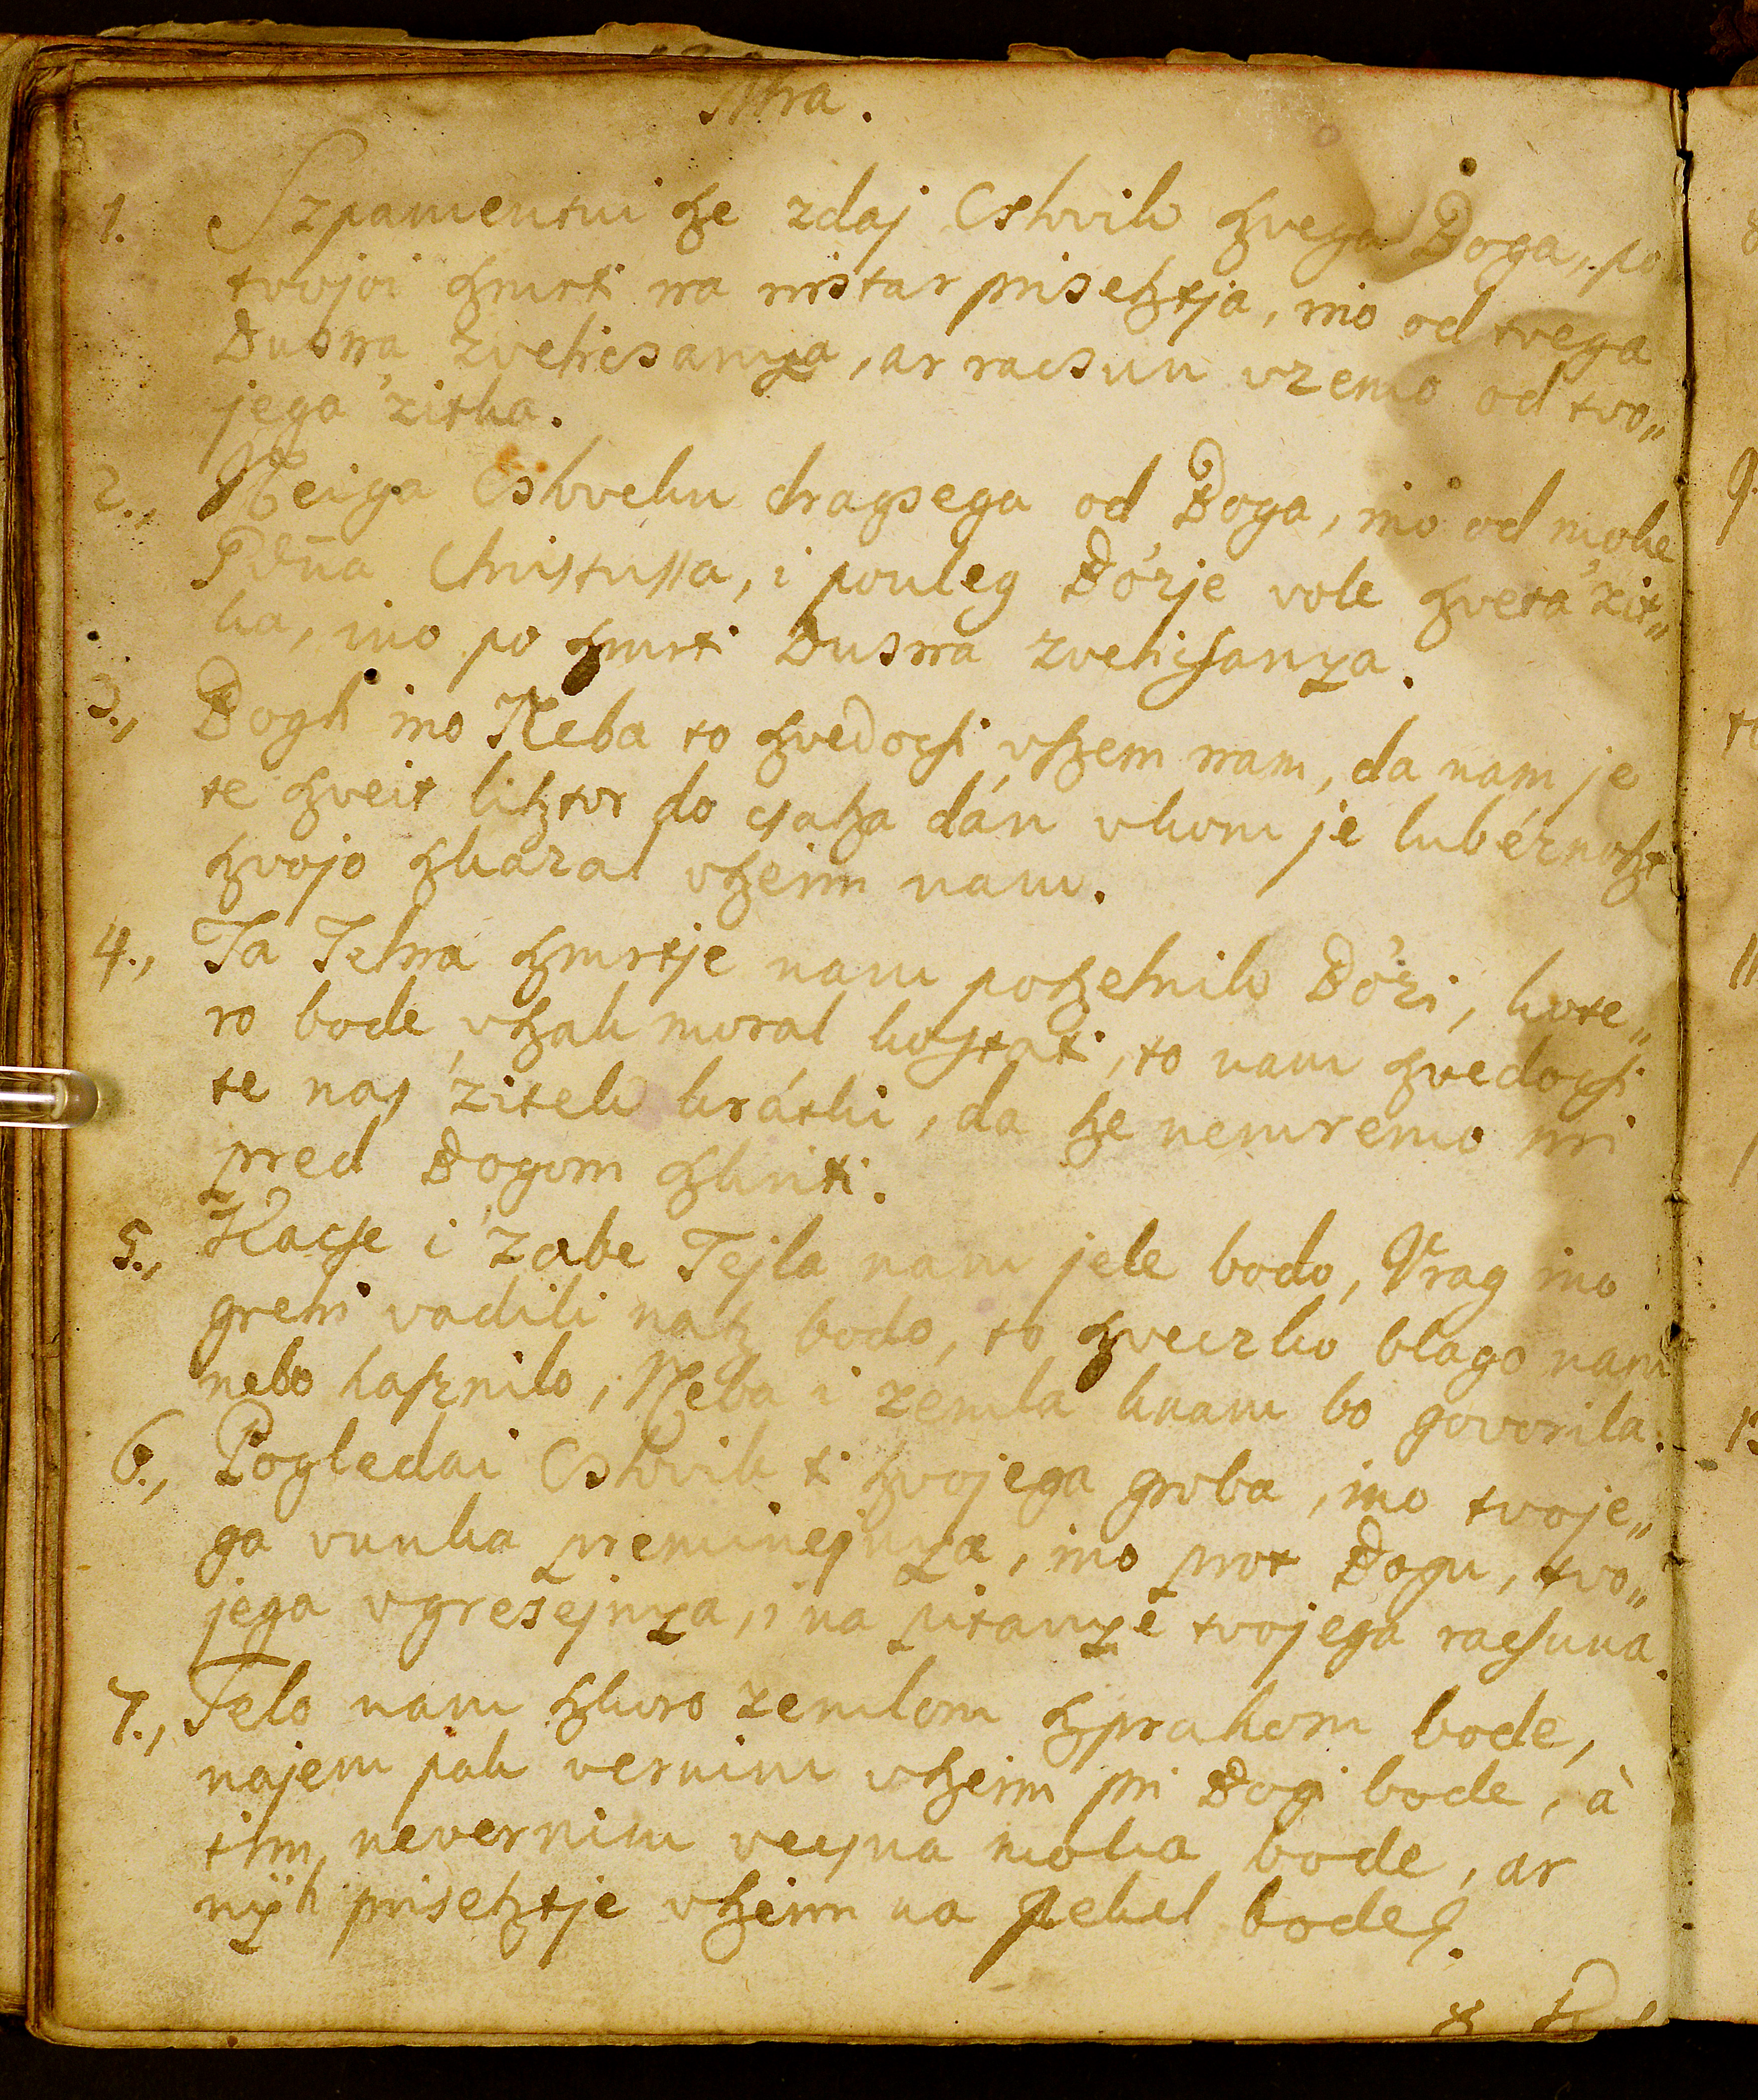 Mra.
1. Szpamentui sze zdaj Cslovik szvega Boga, po
tvojoi szmrti na nistar prisesztja, ino od tvega
Dusna zvelicsanya, ar racsun vzemo od tvo„
jega 'zitka.
2., Neiga Csloveku dragsega od Boga, ino od moke
Pdña Christussa, i pouleg Bo'zje vole szveta 'zit„
ka, ino po szmrti Dusna zvelicsanya.
3., Bogh ino Neba to szvedocsi vszem nam, da nam je
te szveit lisztor do csasza dán vkom je lubéznoszt
szvojo szkazal vszeim nam.
4., Ta Tehna szmrtje nam poszehnilo Bo'zi, kote„
ro bode vszak moral kostati, to nam szvedocsi
te nas 'zitek krátki, da sze nemremo mi
pred Bogom szkriti.
5., Kacse i 'zabe Tejla nam jele bodo, Vrag ino
grehi vadili nasz bodo, to szveczko blago nam
nebo hasznilo, Neba i zemla knam bo govorila.
6., Pogledai Cslovik ti szvojega groba, ino tvoje„
ga vunka preminejnya, ino prot Bogu, tvo„
jega vgresejnya, i na pitanye tvojega racsuna.
7., Telo nam szkoro zemlom szprahom bode,
najem pak vernim vszeim pri Bogi bode, à
tim nevernim vecsna moka bode, ar
nyih prisesztje vszeim na Pekel bode.
8